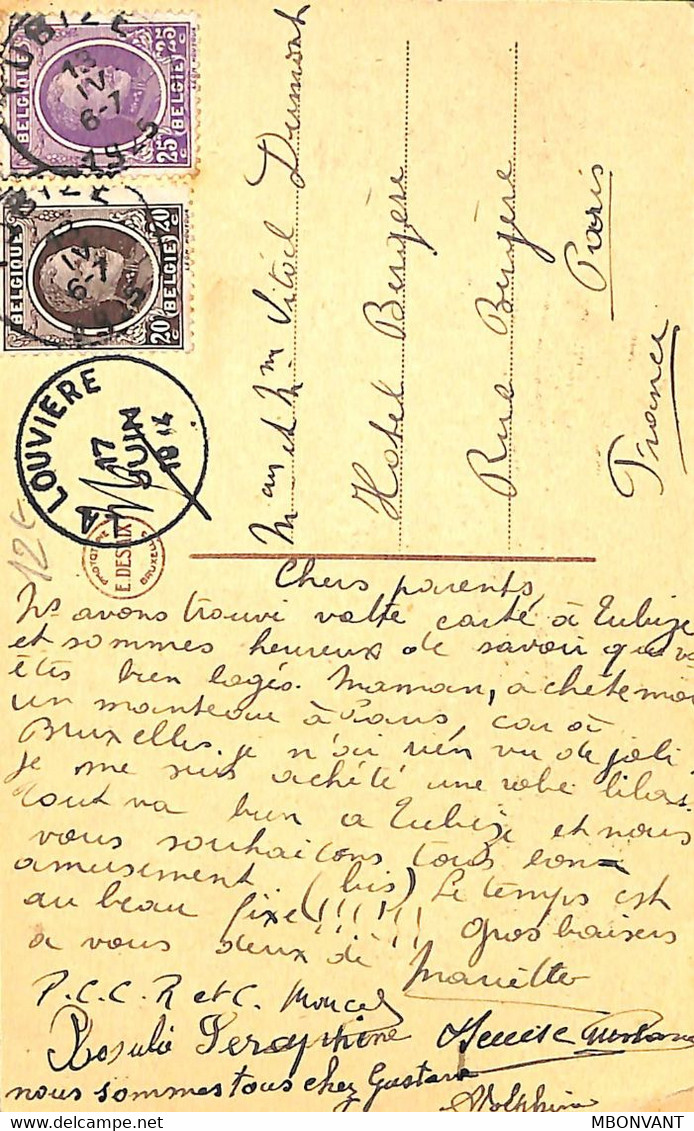 TUBIZE
13
IV
6-7
1925
BELGIQUE
BELGIË
25c 25c
TUBIZE
IV
6-7
1925
BELGIQUE
BELGIË
20c 20c
LA LOUVIÈRE
17
JUIN
PHOTOTYPIE
E. DESAIX
BRUXELLES
Mr et Mme Vital Dumont
Hotel Bergère
Rue Bergère
Paris
France
Chers parents,
Ns avons trouvé votre carte à Tubize
et sommes heureux de savoir que vs
êtes bien logés. Maman, achète moi
un manteau à Paris, car à
Bruxelles. je n'ai rien vu de joli.
Je me suis acheté une robe lilas.
Tout va bien à Tubize et nous
vous souhaitons tous bon
amusement (bis) Le temps est
au beau fixe!!!!!! Gros baisers
à vous deux de Mariette
P.C.C. R et C.
Rosalie Séraphine
nous sommes tous chez Gustave
Adolphine
Delcampe.net
MBONVANT